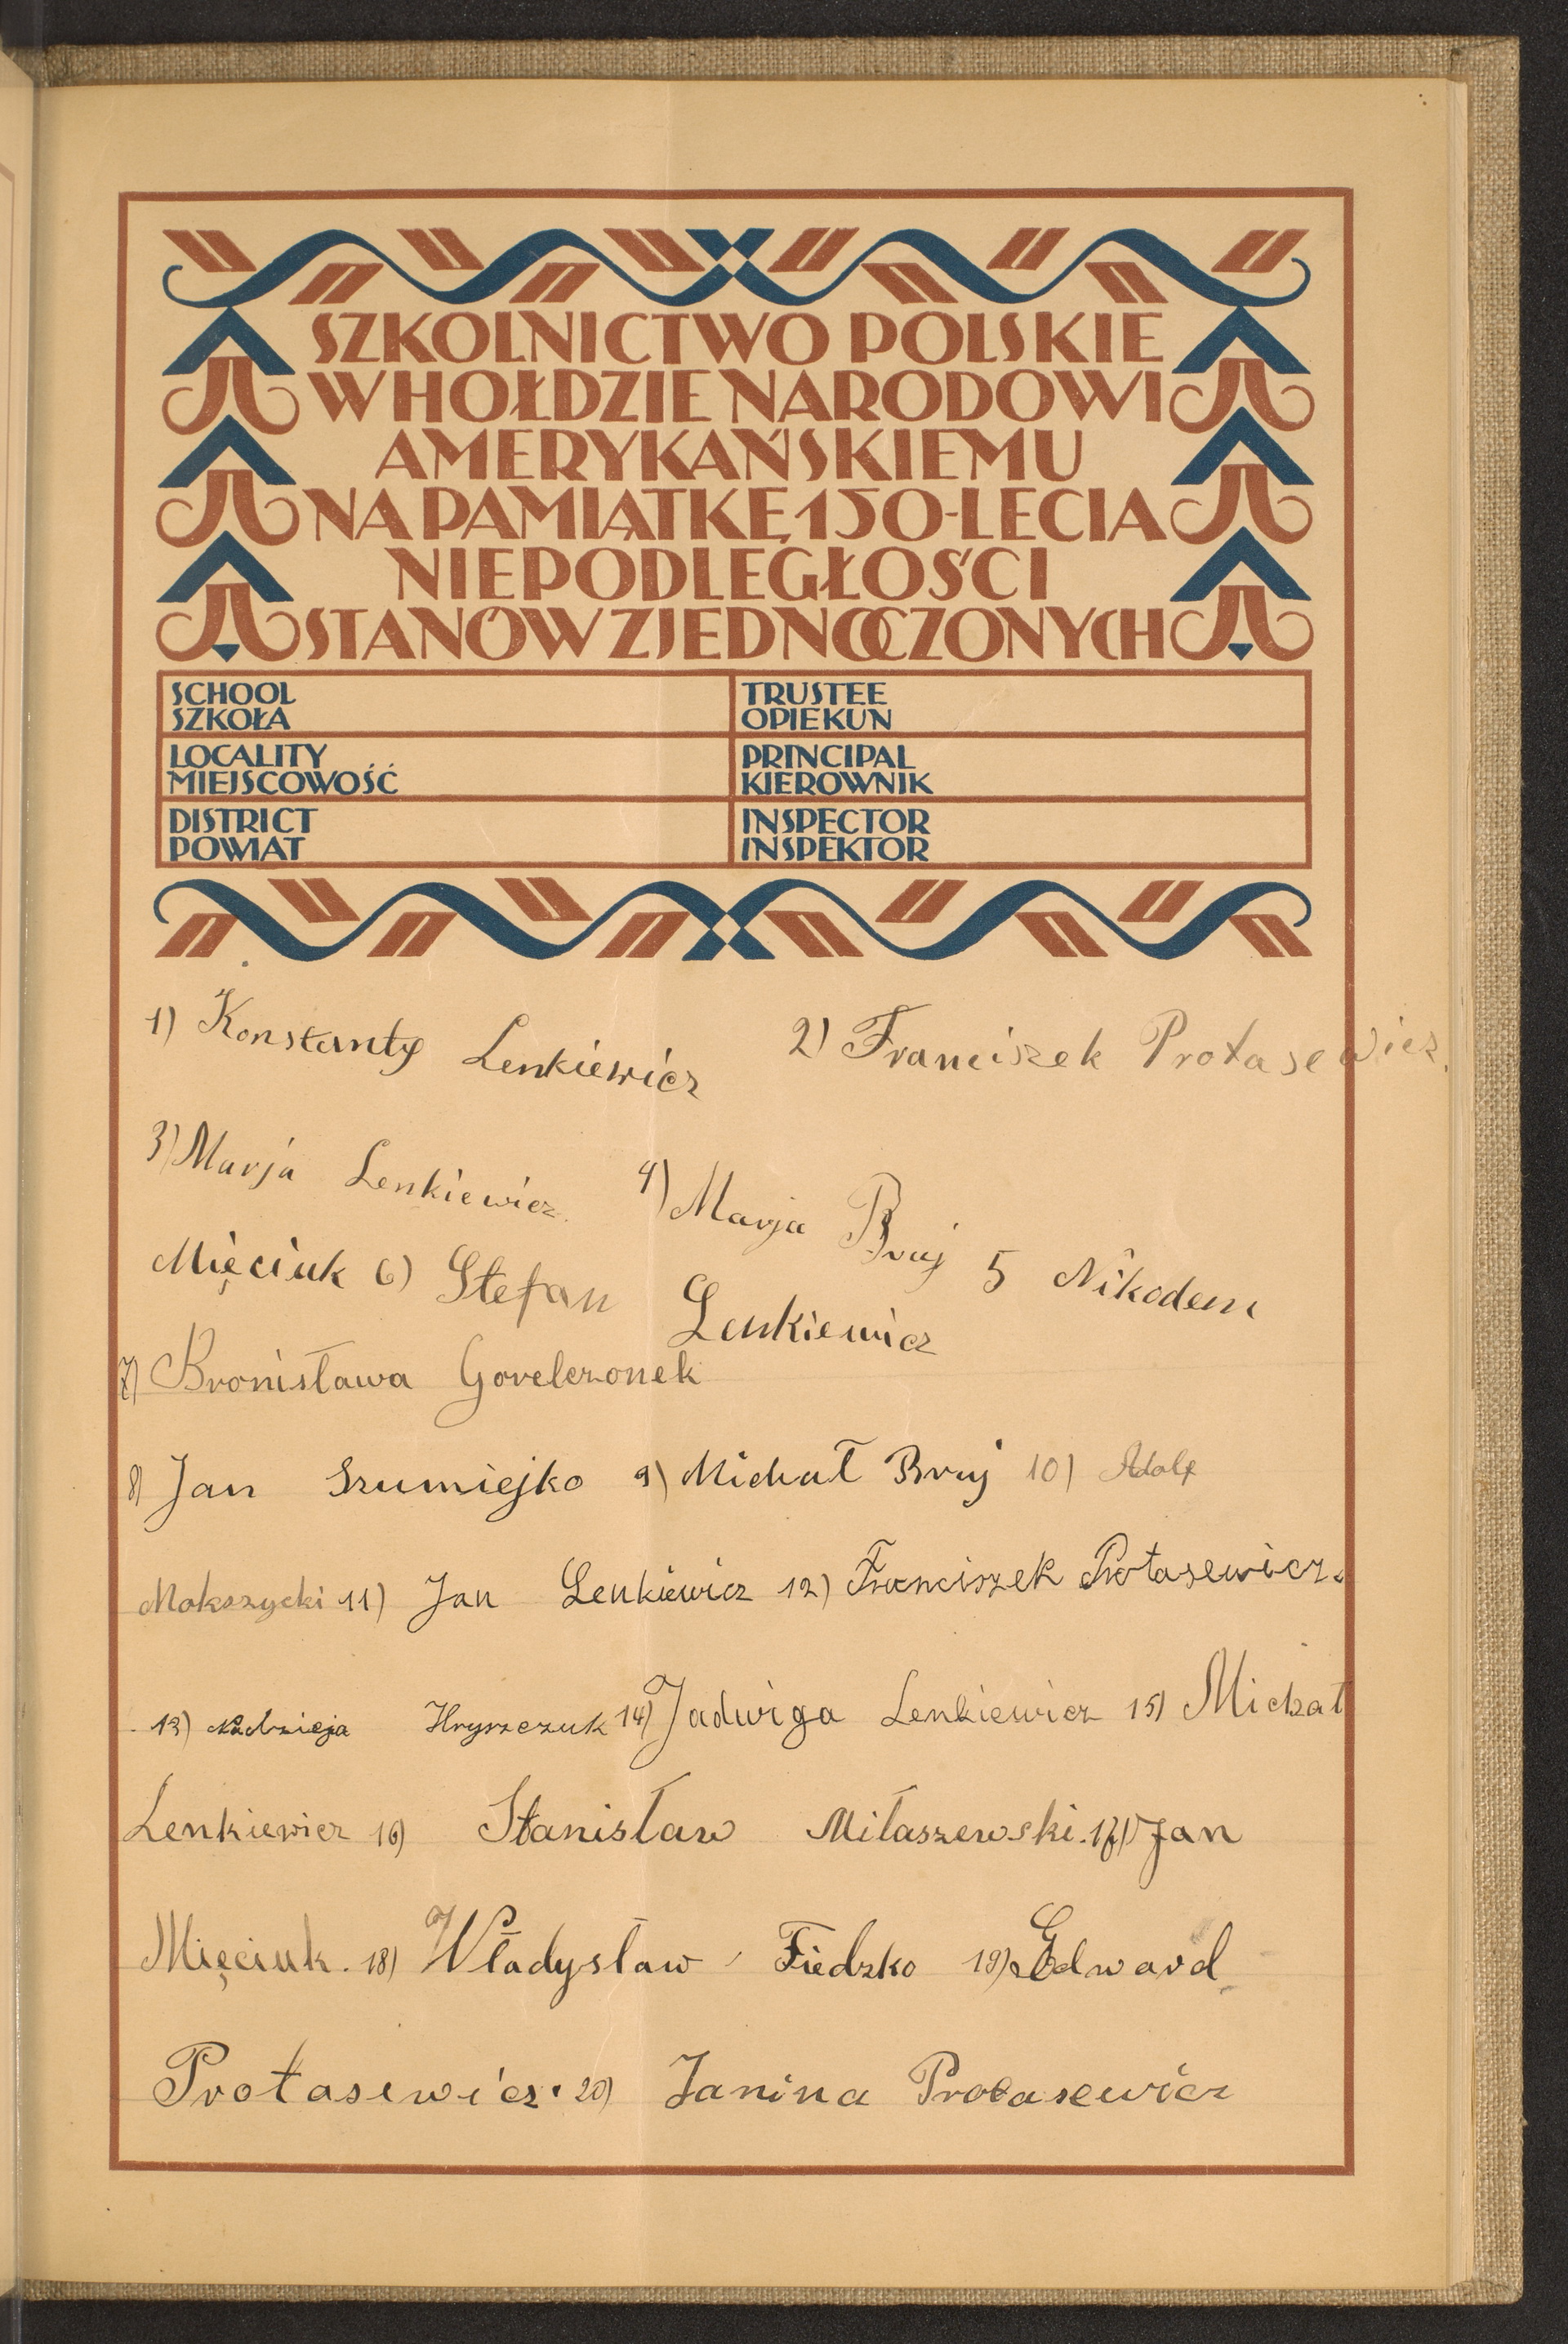 SZKOLNICTWO POLSKIE
W HOŁDZIE NARODOWI
AMERYKAŃSKIEMU
NA PAMIĄTKĘ 150-LECIA
NIEPODLEGŁOŚCI
STANÓW ZJEDNOCZONYCH
SCHOOL
SZKOŁA
TRUSTEE
OPIEKUN
LOCALITY
MIEJSCOWOŚĆ
PRINCIPAL
KIEROWNIK
DISTRICT
POWIAT
INSPECTOR
INSPEKTOR
1) Konstanty Lenkiewicz 2) Franciszek Protasewicz.
3) Marja Lenkiewicz. 4) Marja Bruj 5 Nikodem
Mięciuk 6) Stefan Lenkiewicz
7) Bronisława Gorelczonek
8) Jan Szumiejko 9) Michał Bruj 10) Adolf
Mokszycki 11) Jan Lenkiewicz 12) Franciszek Protasewicz.
13) Nadzieja Hryszczuk 14) Jadwiga Lenkiewicz 15) Michał
Lenkiewicz 16) Stanisław Miłaszewski. 17) Jan
Mięciuk. 18) Władysław Fiedzko 19) Edward
Protasewicz. 20) Janina Protasewicz